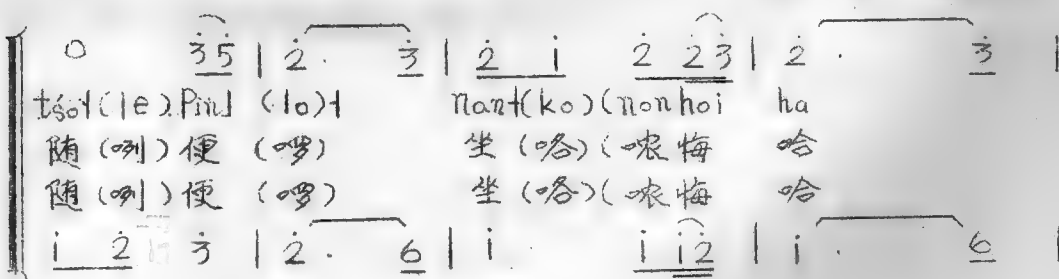 0 3̇5̇ | 2̇. 3̇ | 2̇ i 2̇ 2̇3̇ | 2̇. 3̇ |
tso˧(le) Pin˩ (lo)˧ nan˧(ko)(non hoi ha
随(咧)便 (啰) 坐(咯)(哝悔 哈
随(咧)便 (啰) 坐(咯)(哝悔 哈
i 2̇ 3̇ | 2̇. 6 | i. i i2̇ | i. 6 |